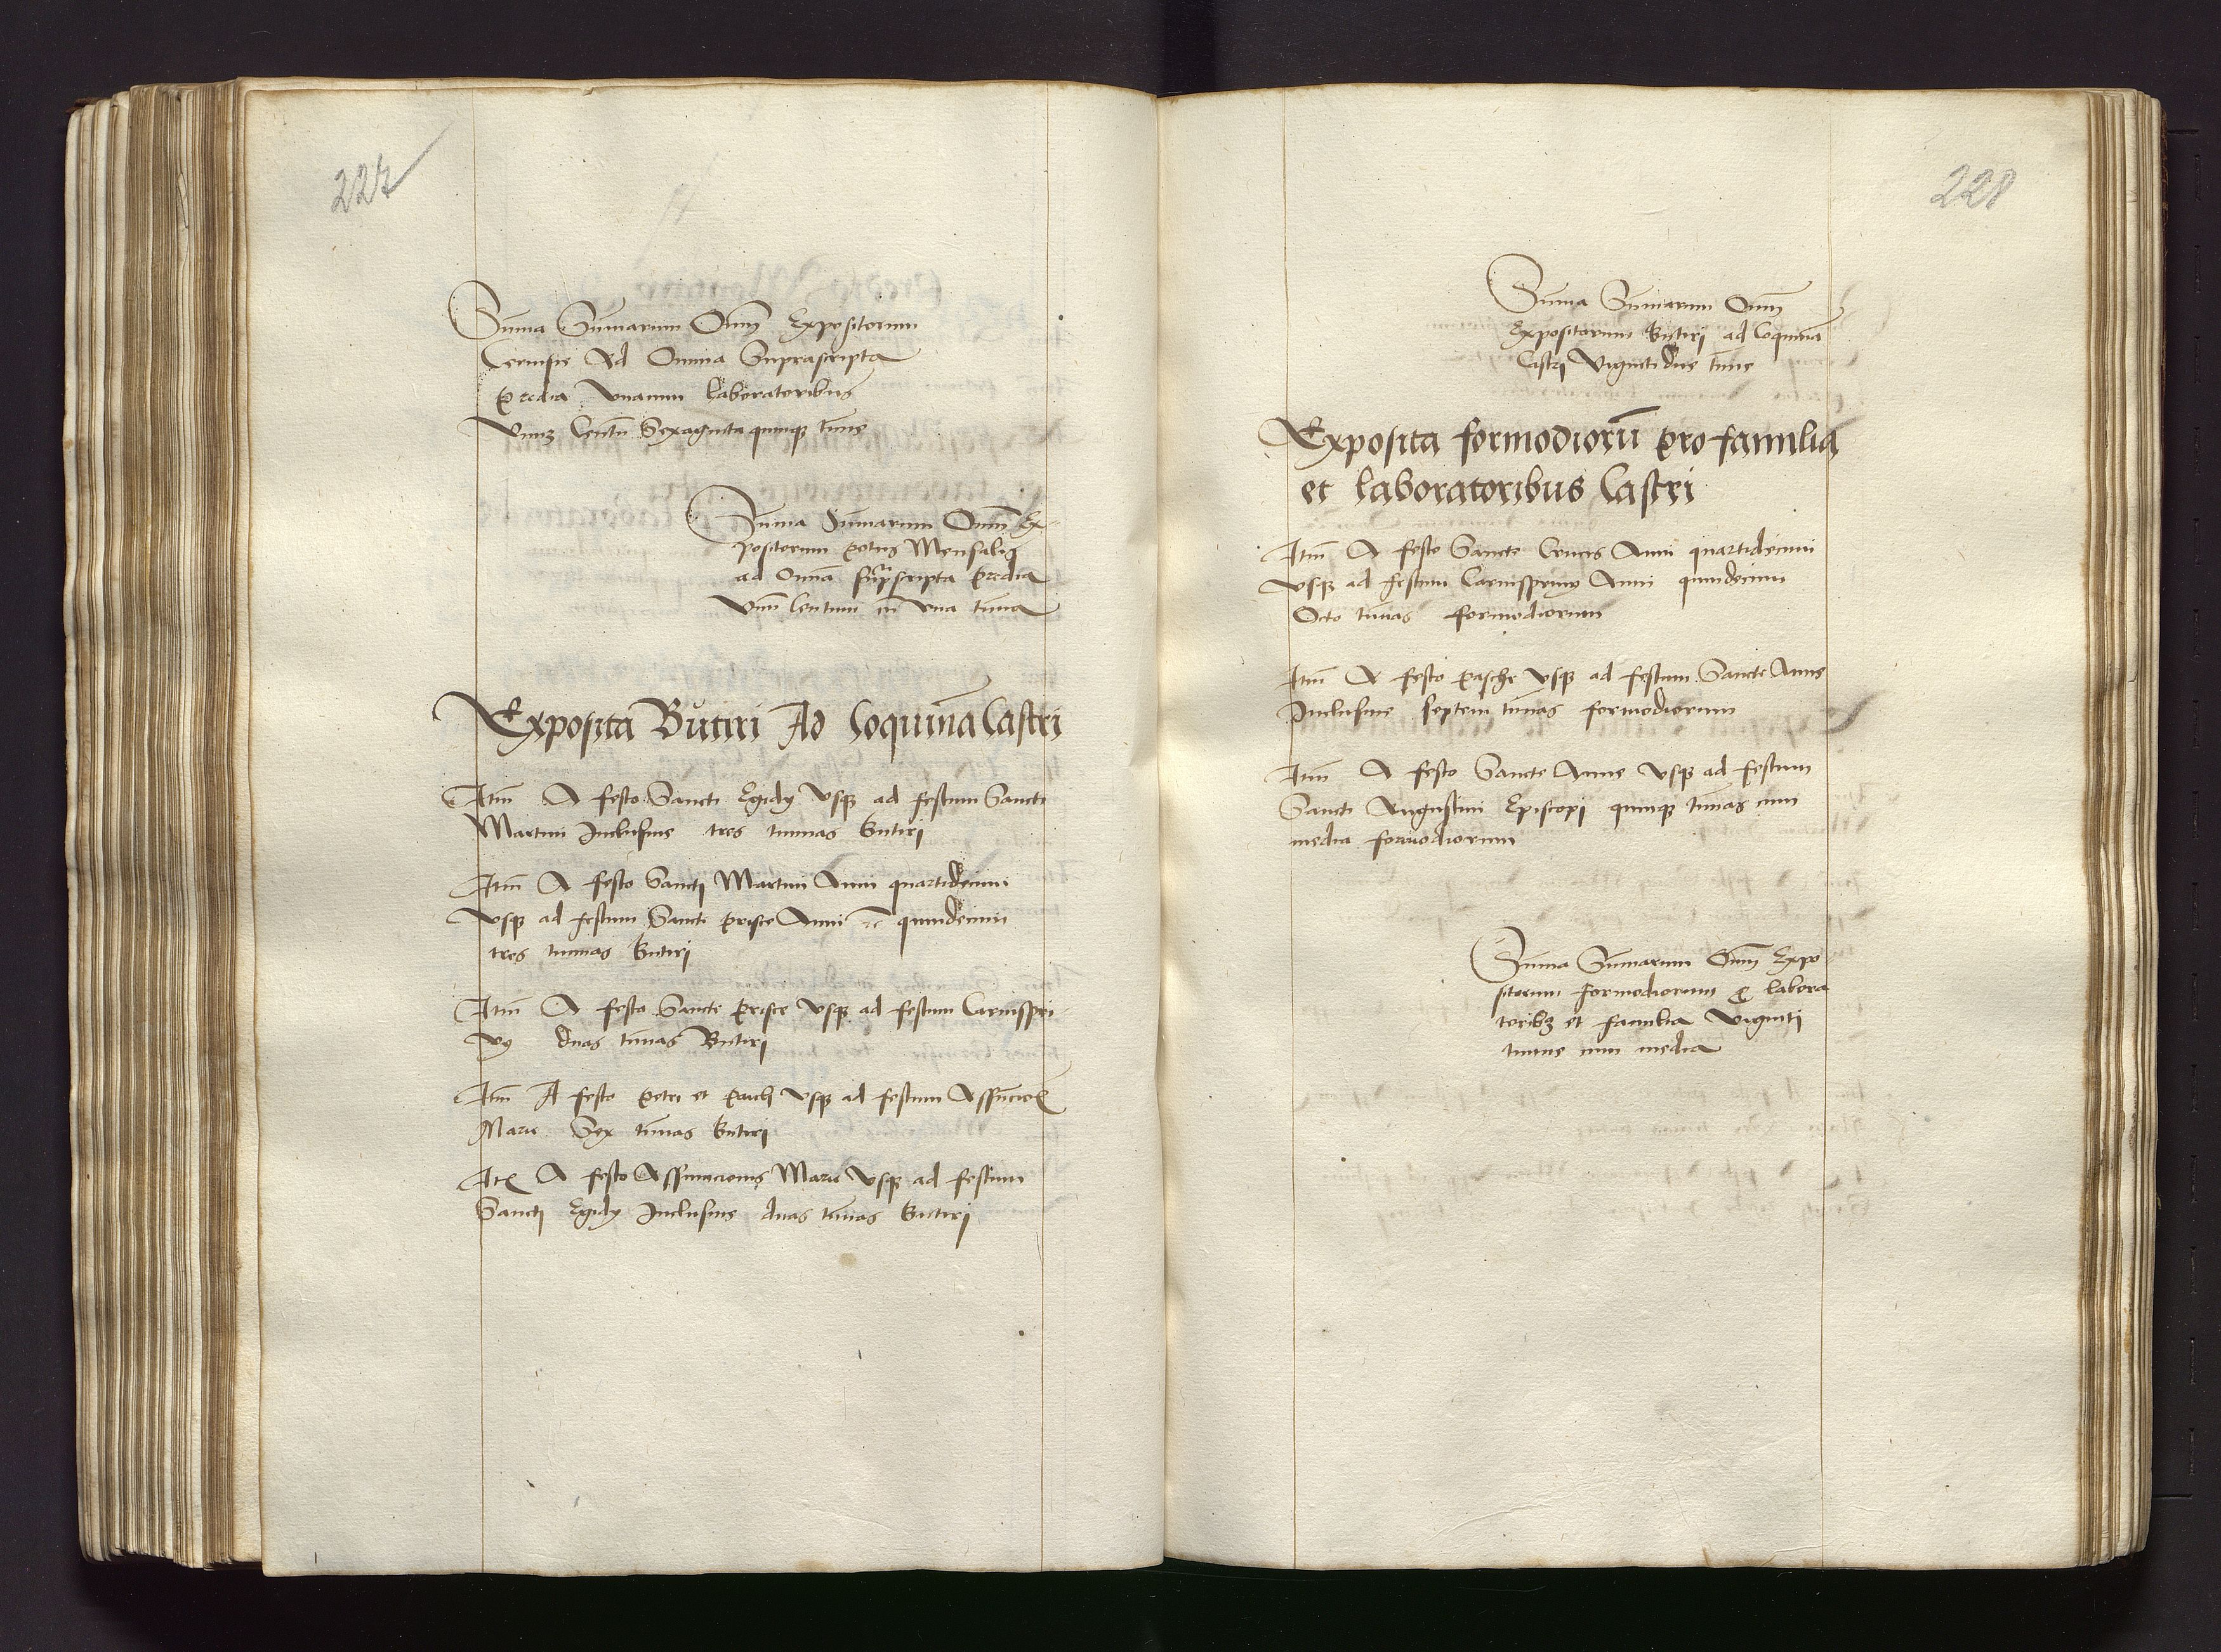 227
Suma Sumarum Omnū Expositorum
Cervisie Ad Omnia Suprascripta
predia unacum laboratoribus
Unū Centū Sexaginta quinqȝ tunne
Suma Sumarum Omnū Ex-
positorum potus Mensalis
ad Omnia suprascripta predia
Unū Centum cū una tunna
Exposita Butiri Ad Coquinā Castri
Itm A festo Sancti Egidy usqȝ ad festum Sancti
Martini Inclusive tres tunnas Butiri
Itm A festo Sancti Martini Anni quartidecimi
usqȝ ad festum Sancti Prisce Anni quindecimi
tres tunnas Butiri
Itm A festo Sancte Prisce usqȝ ad festum Carnispri-
vy duas tunnas Butiri
Itm A festo Petri et Pauli usqȝ ad festum Assūcionis
Marie Sex tunnas Butiri
Itm A festo Assumcionis Marie usqȝ ad festum
Sancti Egidy Inclusive duas tunnas Butiri
228
Suma Sumarum Omnū
Expositorum Butiri ad Coquinā
Castri Vigintidue tunne
Exposita formodiorū pro familia
et laboratoribus Castri
Itm A festo Sancte Crucis Anni quartidecimi
usqȝ ad festum Carnisprivy Anni quindecimi
Octo tunnas formodiorum
Itm A festo pasche usqȝ ad festum Sancte Anne
Inclusive septem tunnas formodiorum
Itm A festo Sancte Anne usqȝ ad festum
Sancti Augustini Episcopi quinqȝ tunnas cum
media formodiorum
Suma Sumarum Omnū Expo
sitorum formodiorum ꝓ labora
toribȝ et familia Viginti
tunne cum media